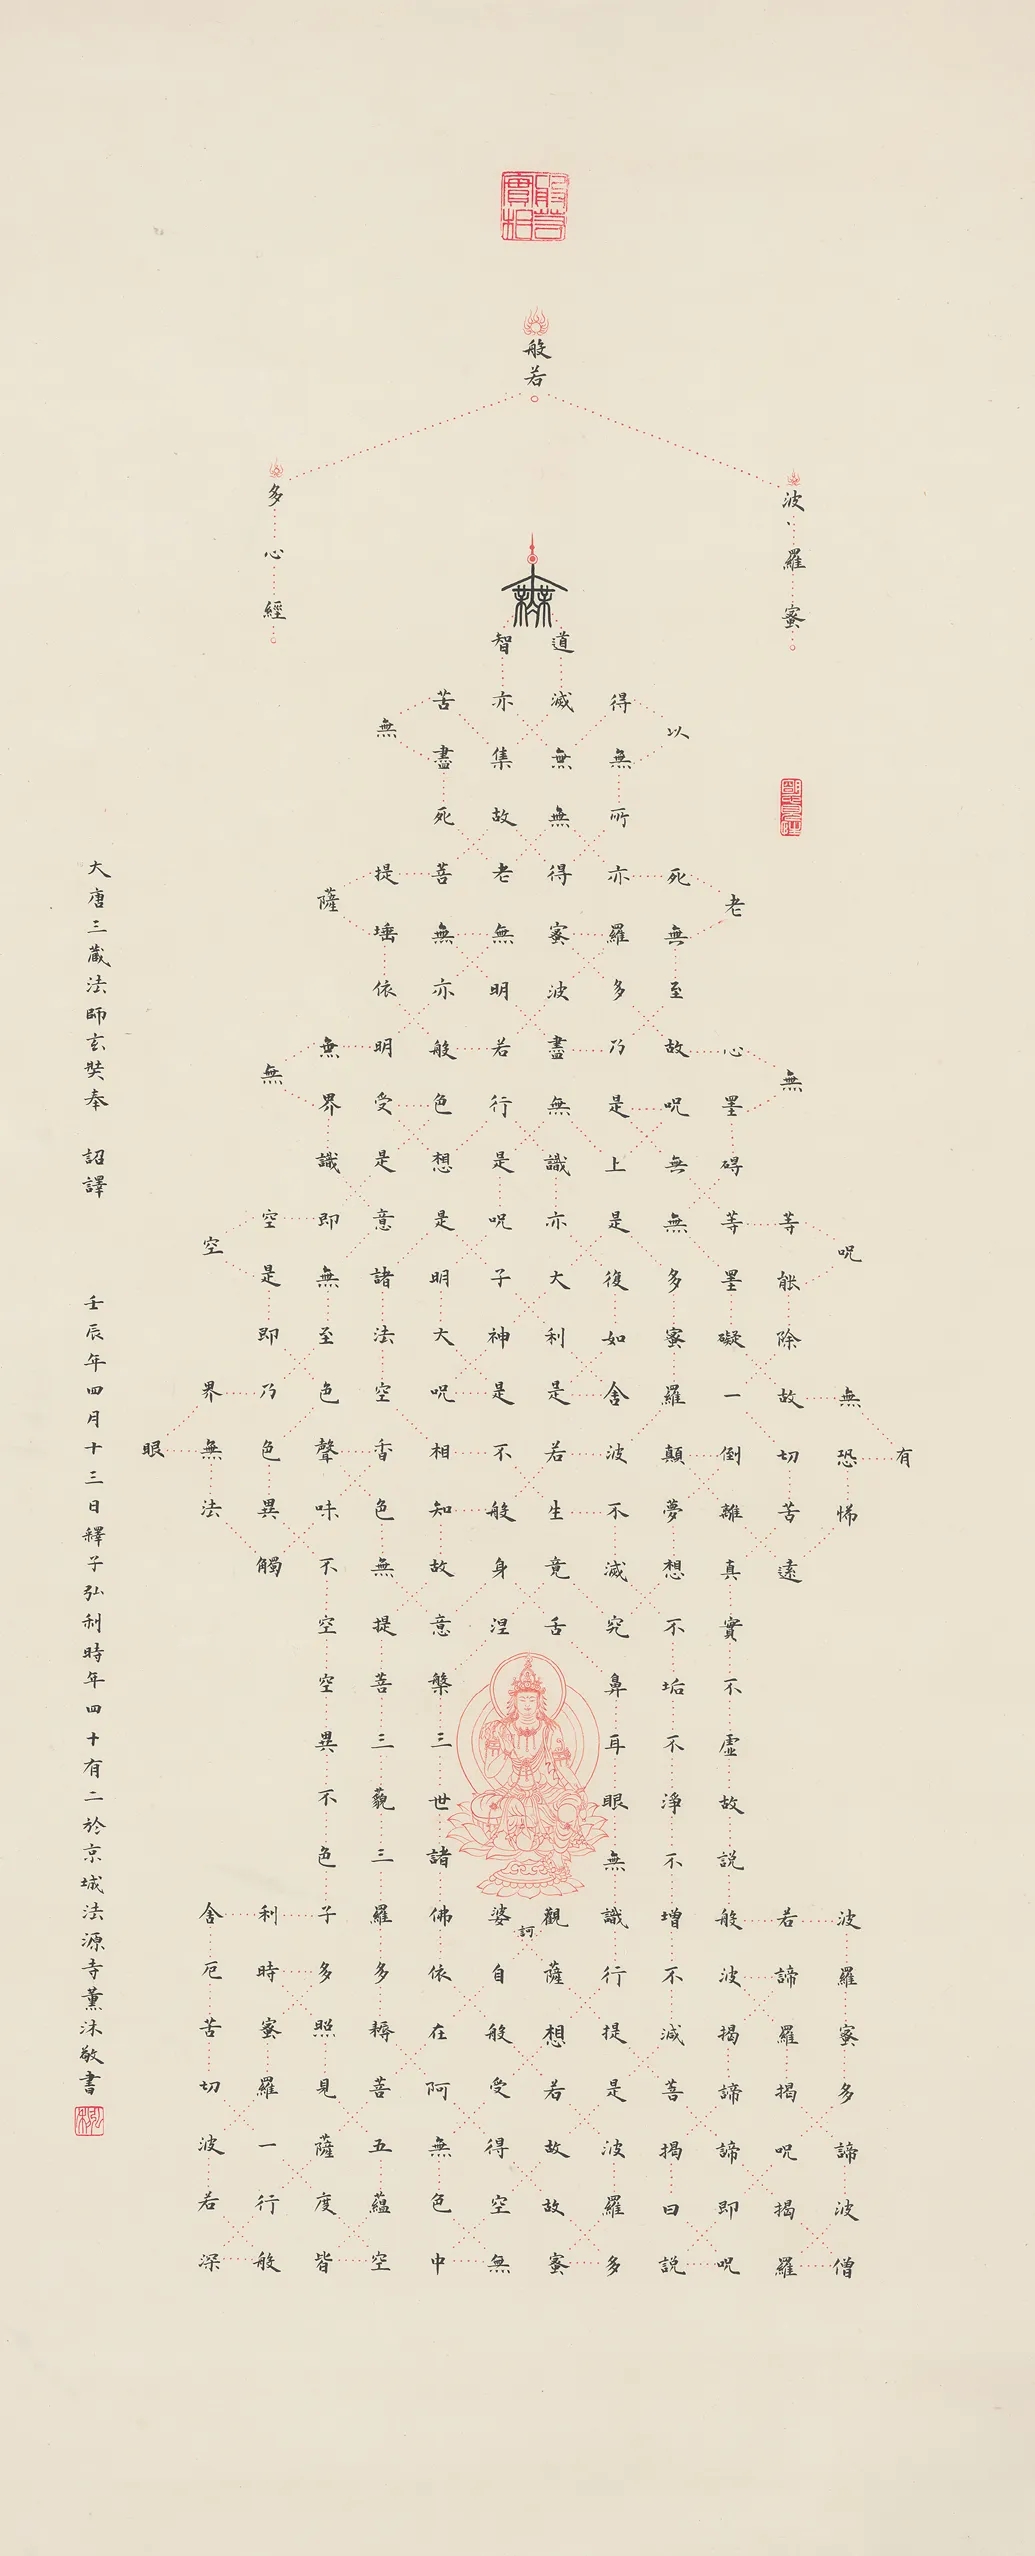 般若實相
般若
波羅蜜
多心經
觀自在菩薩行深般若波羅蜜多時照見五蘊皆空度一切苦厄舍利子色不異空空不異色色即是空空即是色受想行識亦復如是舍利子是諸法空相不生不滅不垢不淨不增不減是故空中無色無受想行識無眼耳鼻舌身意無色聲香味觸法無眼界乃至無意識界無無明亦無無明盡乃至無老死亦無老死盡無苦集滅道無智亦無得以無所得故菩提薩埵依般若波羅蜜多故心無罣碍無罣礙故無有恐怖遠離顛倒夢想究竟涅槃三世諸佛依般若波羅蜜多故得阿耨多羅三藐三菩提故知般若波羅蜜多是大神呪是大明呪是無上呪是無等等呪能除一切苦真實不虛故說般若波羅蜜多呪即說呪曰揭諦揭諦波羅揭諦波羅僧揭諦菩提薩婆訶
大唐三藏法師玄奘奉 詔譯 壬辰年四月十三日釋子弘利時年四十有二於京城法源寺薰沐敬書